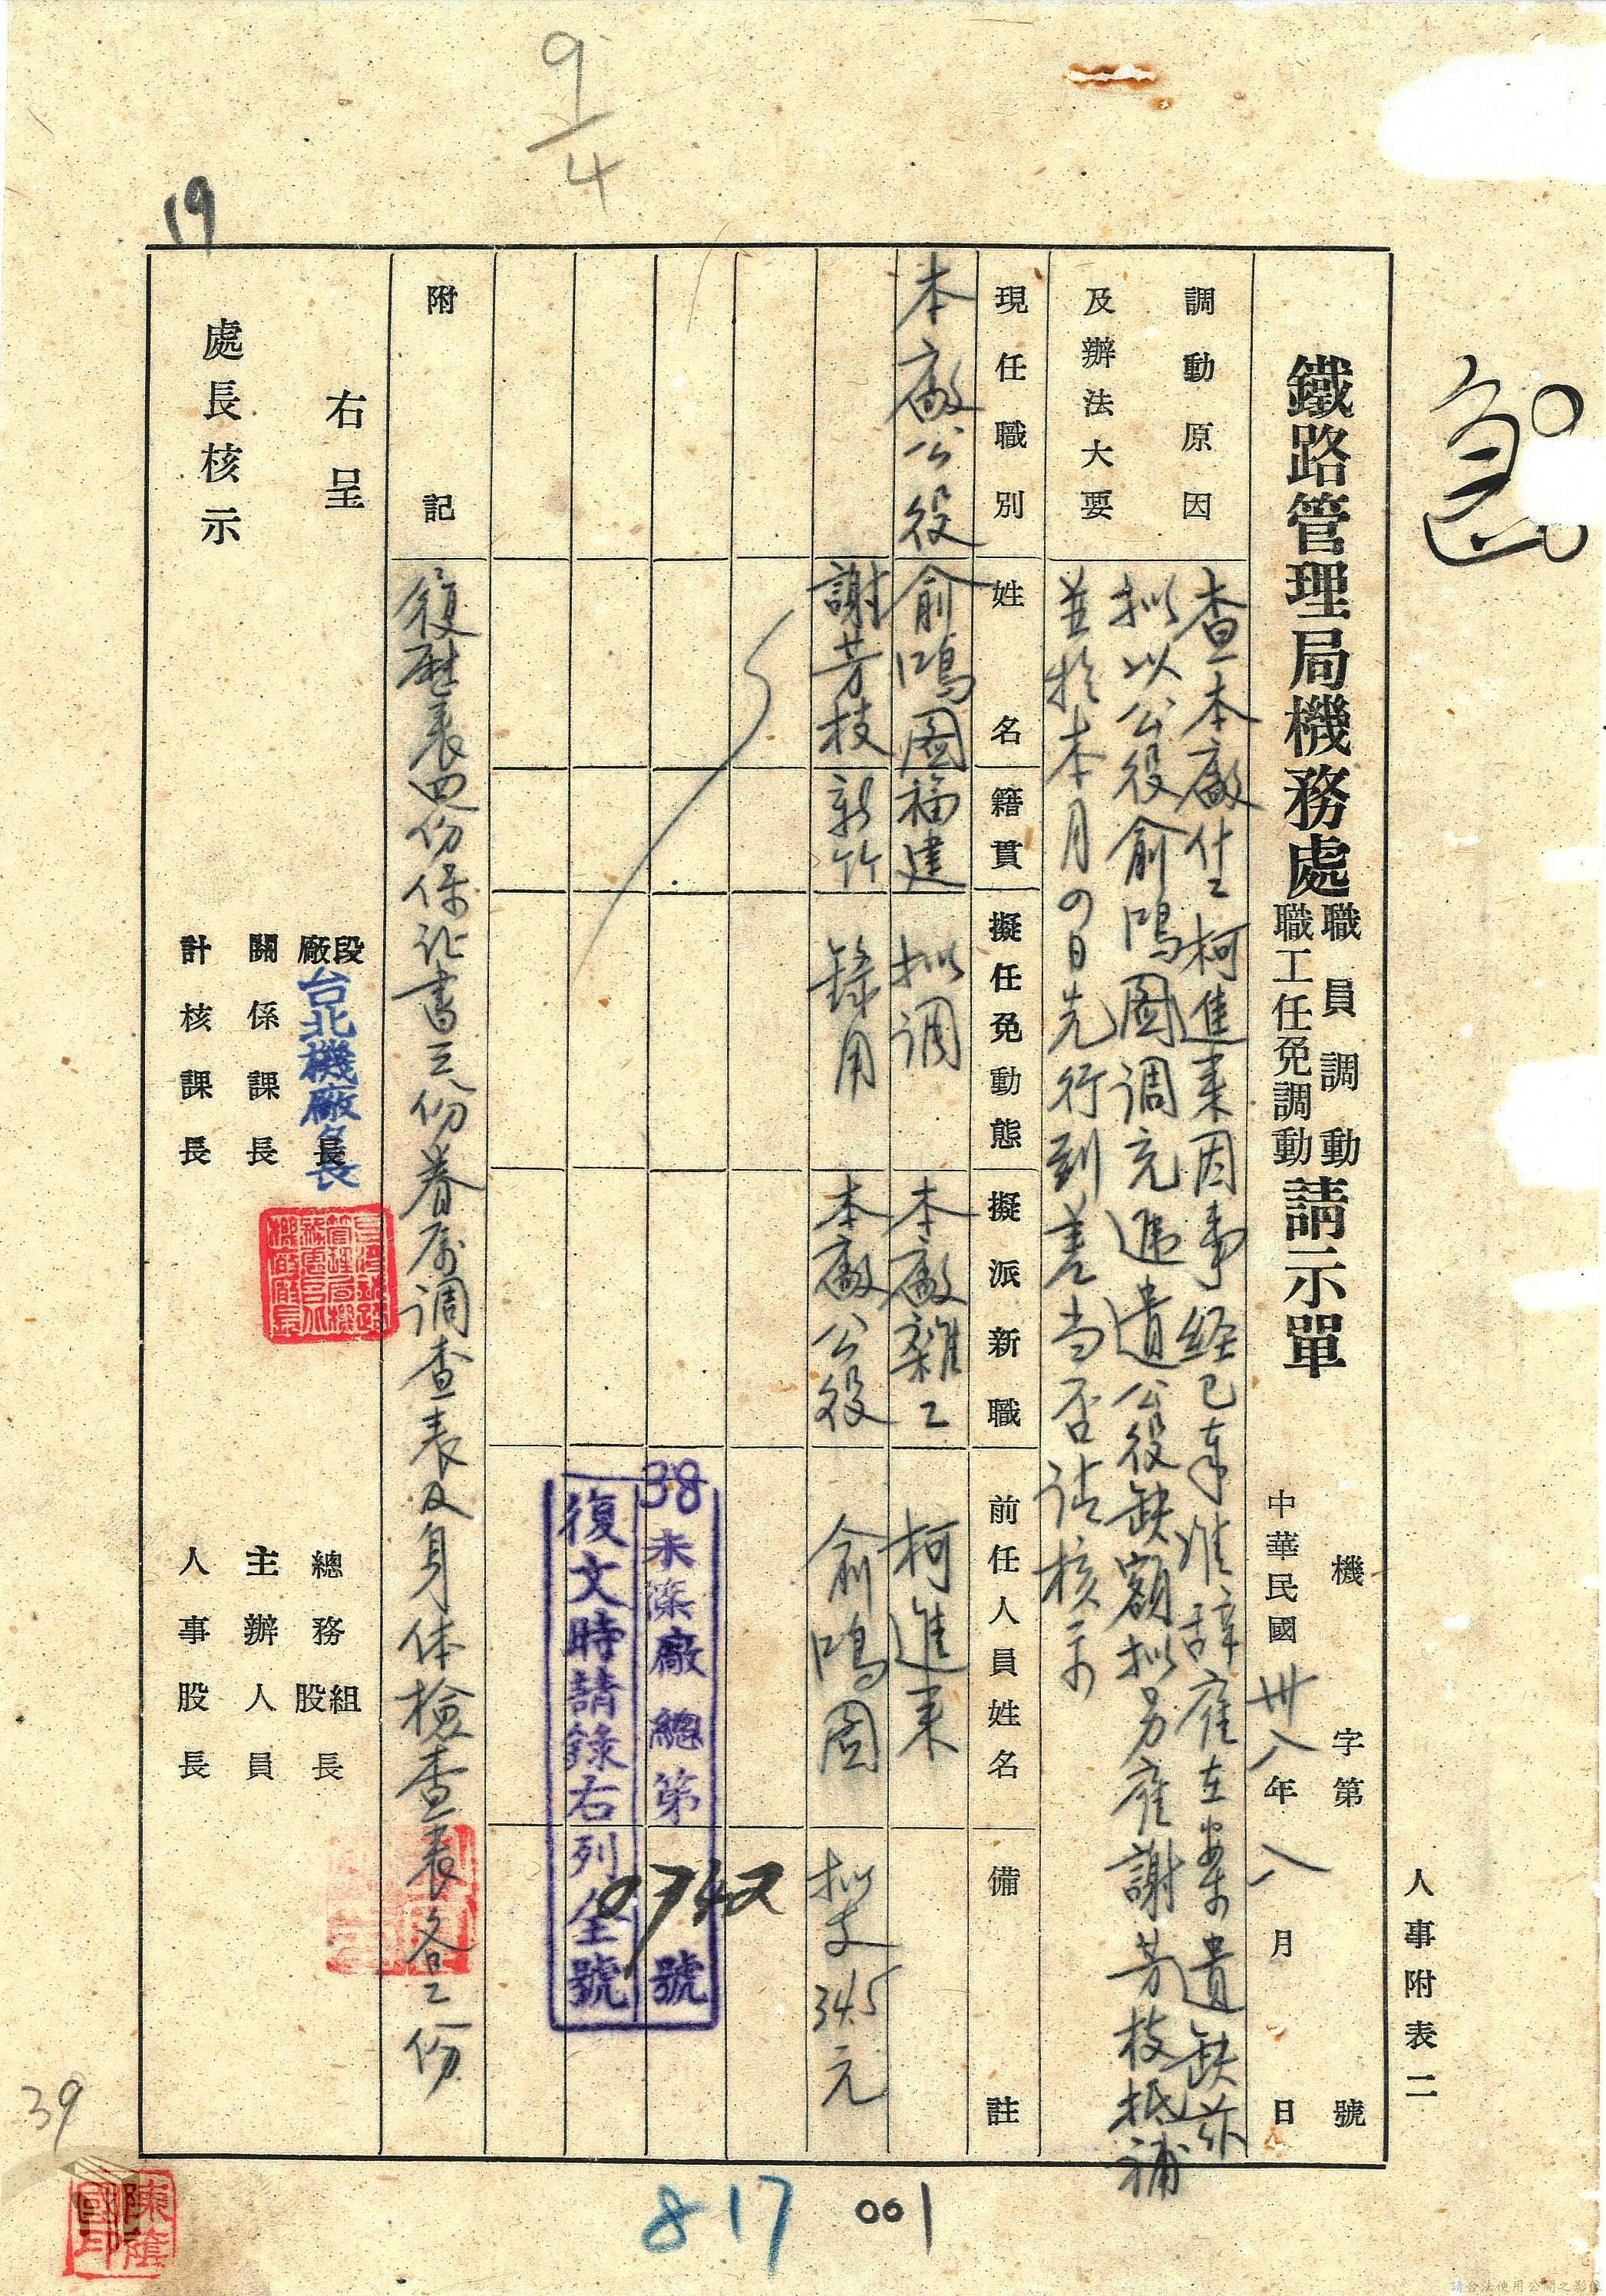 9/4
19
急
人事附表二
鐵路管理局機務處職員調動職工任免調動請示單
機字第號
中華民國卅八年八月日
調動原因及辦法大要
查本廠什工柯進來因事經已奉准辞雇在案遺缺茲
拟以公役俞鴻圖调充遞遺公役缺額拟另雇謝芳枝抵補
並於本月の日先行到差当否请核示
現任職別
姓名
籍貫
擬任免動態
擬派新職
前任人員姓名
備註
本廠公役
俞鴻圖
福建
拟调
本廠雜工
柯進来
謝芳枝
新竹
錄用
本廠公役
俞鴻圖
拟支345元
38未深廠總第0742號
復文時請錄右列全號
附記
復歷表四份保证書三份眷屬调查表及身体檢查表各二份
右呈
處長核示
段廠長
台北機廠長
關係課長
計核課長
總務組股長
主辦人員
人事股長
39
817
001
請合法使用公開之影像